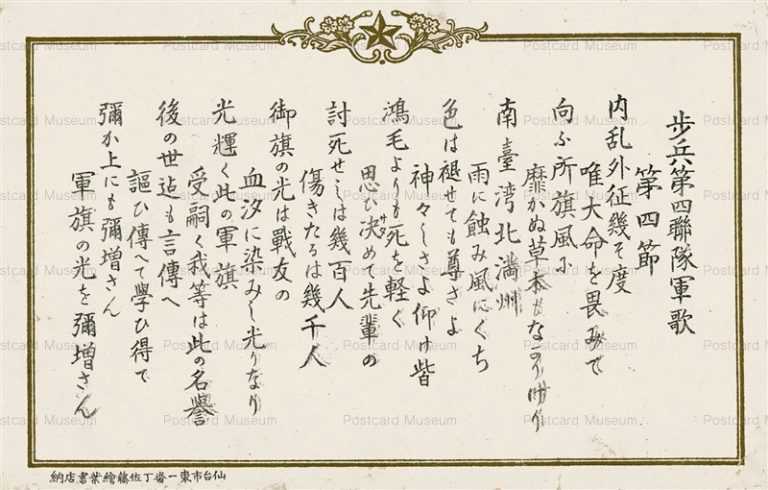 歩兵第四聯隊軍歌
第四節
内乱外征幾そ度
唯大命を畏みて
向ふ所旗風に
靡かぬ草木もなかりけり
南臺湾北満州
雨に蝕み風にくち
色は褪せても尊さよ
神々しさよ仰け皆
鴻毛よりも死を軽く
思ひ决めて先輩の
サダ
討死せしは幾百人
傷きたるは幾千人
御旗の光は戰友の
血汐に染みし光りなり
光輝く此の軍旗
受嗣く我等は此の名譽
後の世迠も言傳へ
謳ひ傳へて學ひ得て
彌か上にも彌増さん
軍旗の光を彌増さん
仙台市東一番丁佐藤繪葉書店納
Postcard Museum